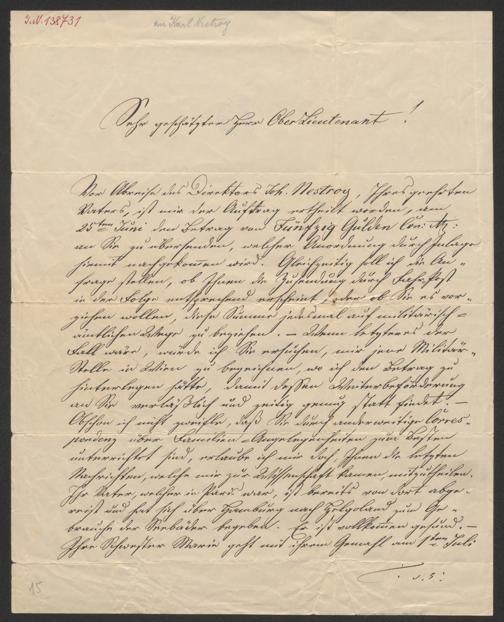 I.N. 138731
an Karl Nestroy
Sehr geschätzter Herr Ober Lieutenant!
Vor Abreise des Direktors Joh. Nestroy, Ihres geehrten
Vaters, ist mir der Auftrag ertheilt worden, am
25ten Juni den Betrag von Fünfzig Gulden Con. Mz:
an Sie zu übersenden, welcher Anordnung durch Anlage
hiemit nachgekommen wird. Gleichzeitig soll ich die An-
frage stellen, ob Ihnen die Zusendung durch Fahrpost
in der Folge entsprechend erscheint, oder ob Sie es vor-
ziehen wollen, diese Summe jedesmal auf militärisch-
ämtlichen Wege zu beziehen. — Wenn letzteres der
Fall wäre, würde ich Sie ersuchen, mir jene Militär-
Stelle in Wien zu bezeichnen, wo ich den Betrag zu
hinterlegen hätte, damit dessen Weiterbeförderung
an Sie verläßlich und zeitig genug statt findet. —
Obschon ich nicht zweifle, daß Sie durch anderweitige Corres-
pondenz über Familien-Angelegenheiten zum besten
unterrichtet sind, erlaube ich mir doch, Ihnen die letzten
Nachrichten, welche mir zur Wissenschaft kamen, mitzutheilen.
Ihr Vater, welcher in Paris war, ist bereits von dort abge-
reist und hat sich über Hamburg nach Helgoland zum Ge-
brauche der Seebäder begeben. Er ist vollkommen gesund. —
Ihre Schwester Marie geht mit ihrem Gemahl am 1ten Juli
15